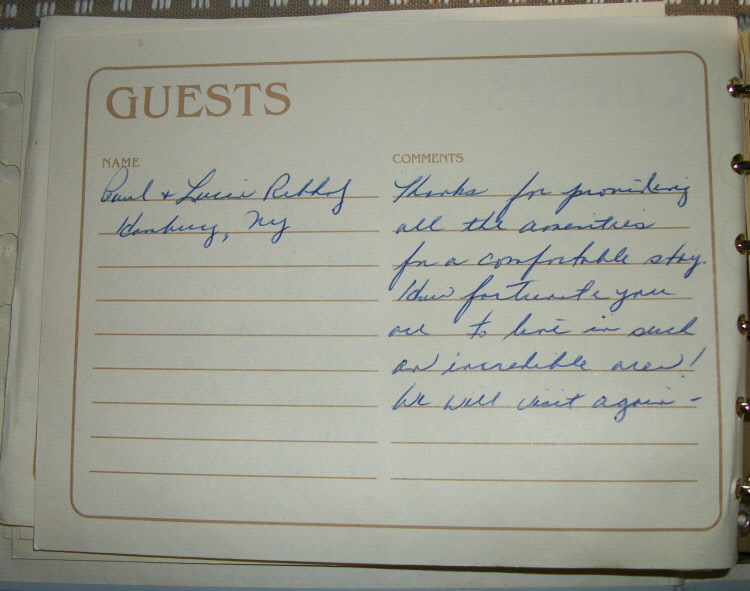 GUESTS
NAME
COMMENTS
Paul + Lucie
Hamburg, NY
Thanks for providing
all the amenities
for a comfortable stay.
How fortunate you
are to live in such
an incredible area!
We will visit again -